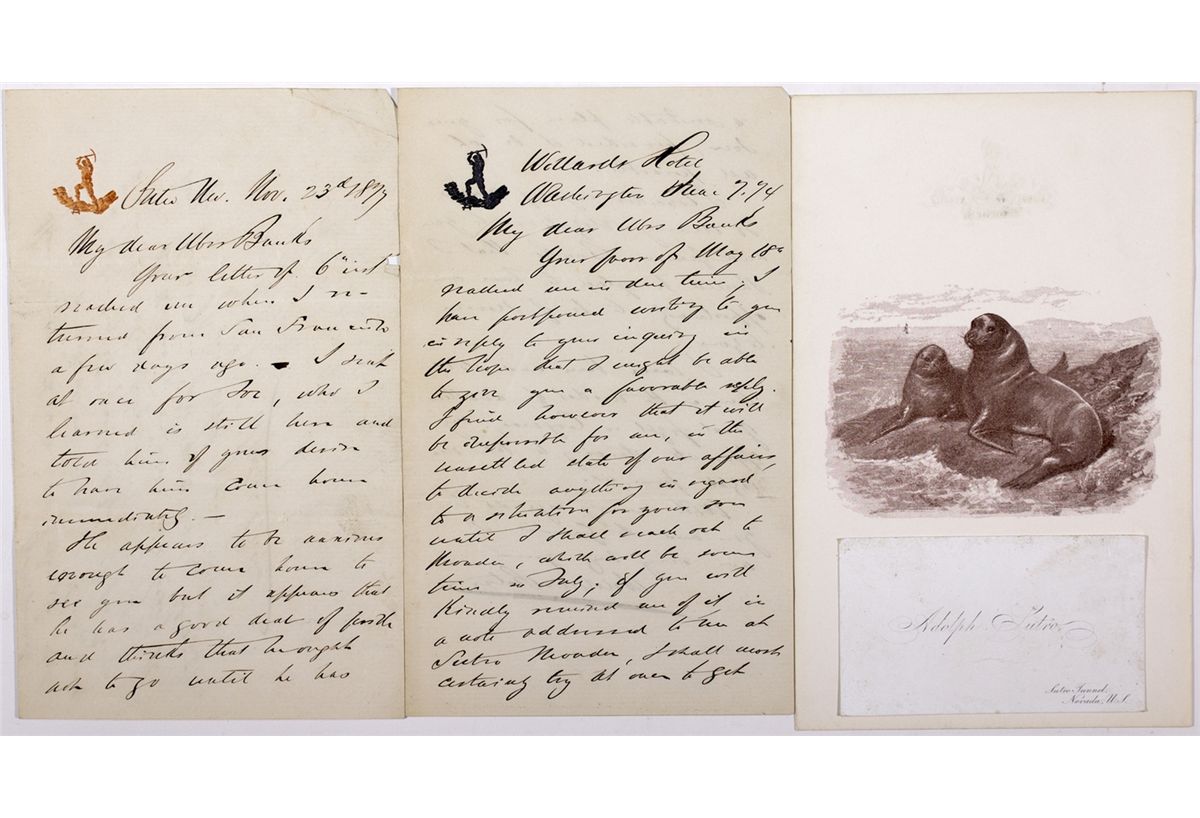 Sutro Nev. Nov. 23d 1877
My dear Mrs Banks
Your letter of 6" inst
reached me when I re-
turned from San Francisco
a few days ago. — I sent
at once for Joe, who I
learned is still here and
told him of your desire
to have him come home
immediately. —
He appears to be anxious
enough to come home to
see you but it appears that
he has a good deal of pride
and thinks that he ought
not to go until he has
Willards Hotel
Washington June 7. 74
My dear Mrs Banks
Your favor of May 18th
reached me in due time; I
have postponed writing to you
in reply to your inquiry in
the hope that I might be able
to give you a favorable reply.
I find however that it will
be impossible for me, in the
unsettled state of our affairs,
to decide anything in regard
to a situation for your son
until I shall reach out to
Nevada, which will be some
time in July; if you will
kindly remind me of it in
a note addressed to me at
Sutro Nevada, I shall most
certainly try at once to get
Adolph Sutro
Sutro Tunnel,
Nevada, U.S.